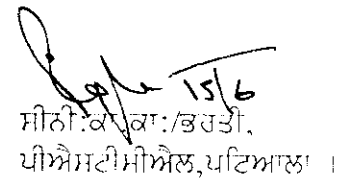 15/6
ਸੀਨੀ:ਕਾ.ਕਾ:/ਭਰਤੀ,
ਪੀਐਸਟੀਸੀਐਲ,ਪਟਿਆਲਾ ।